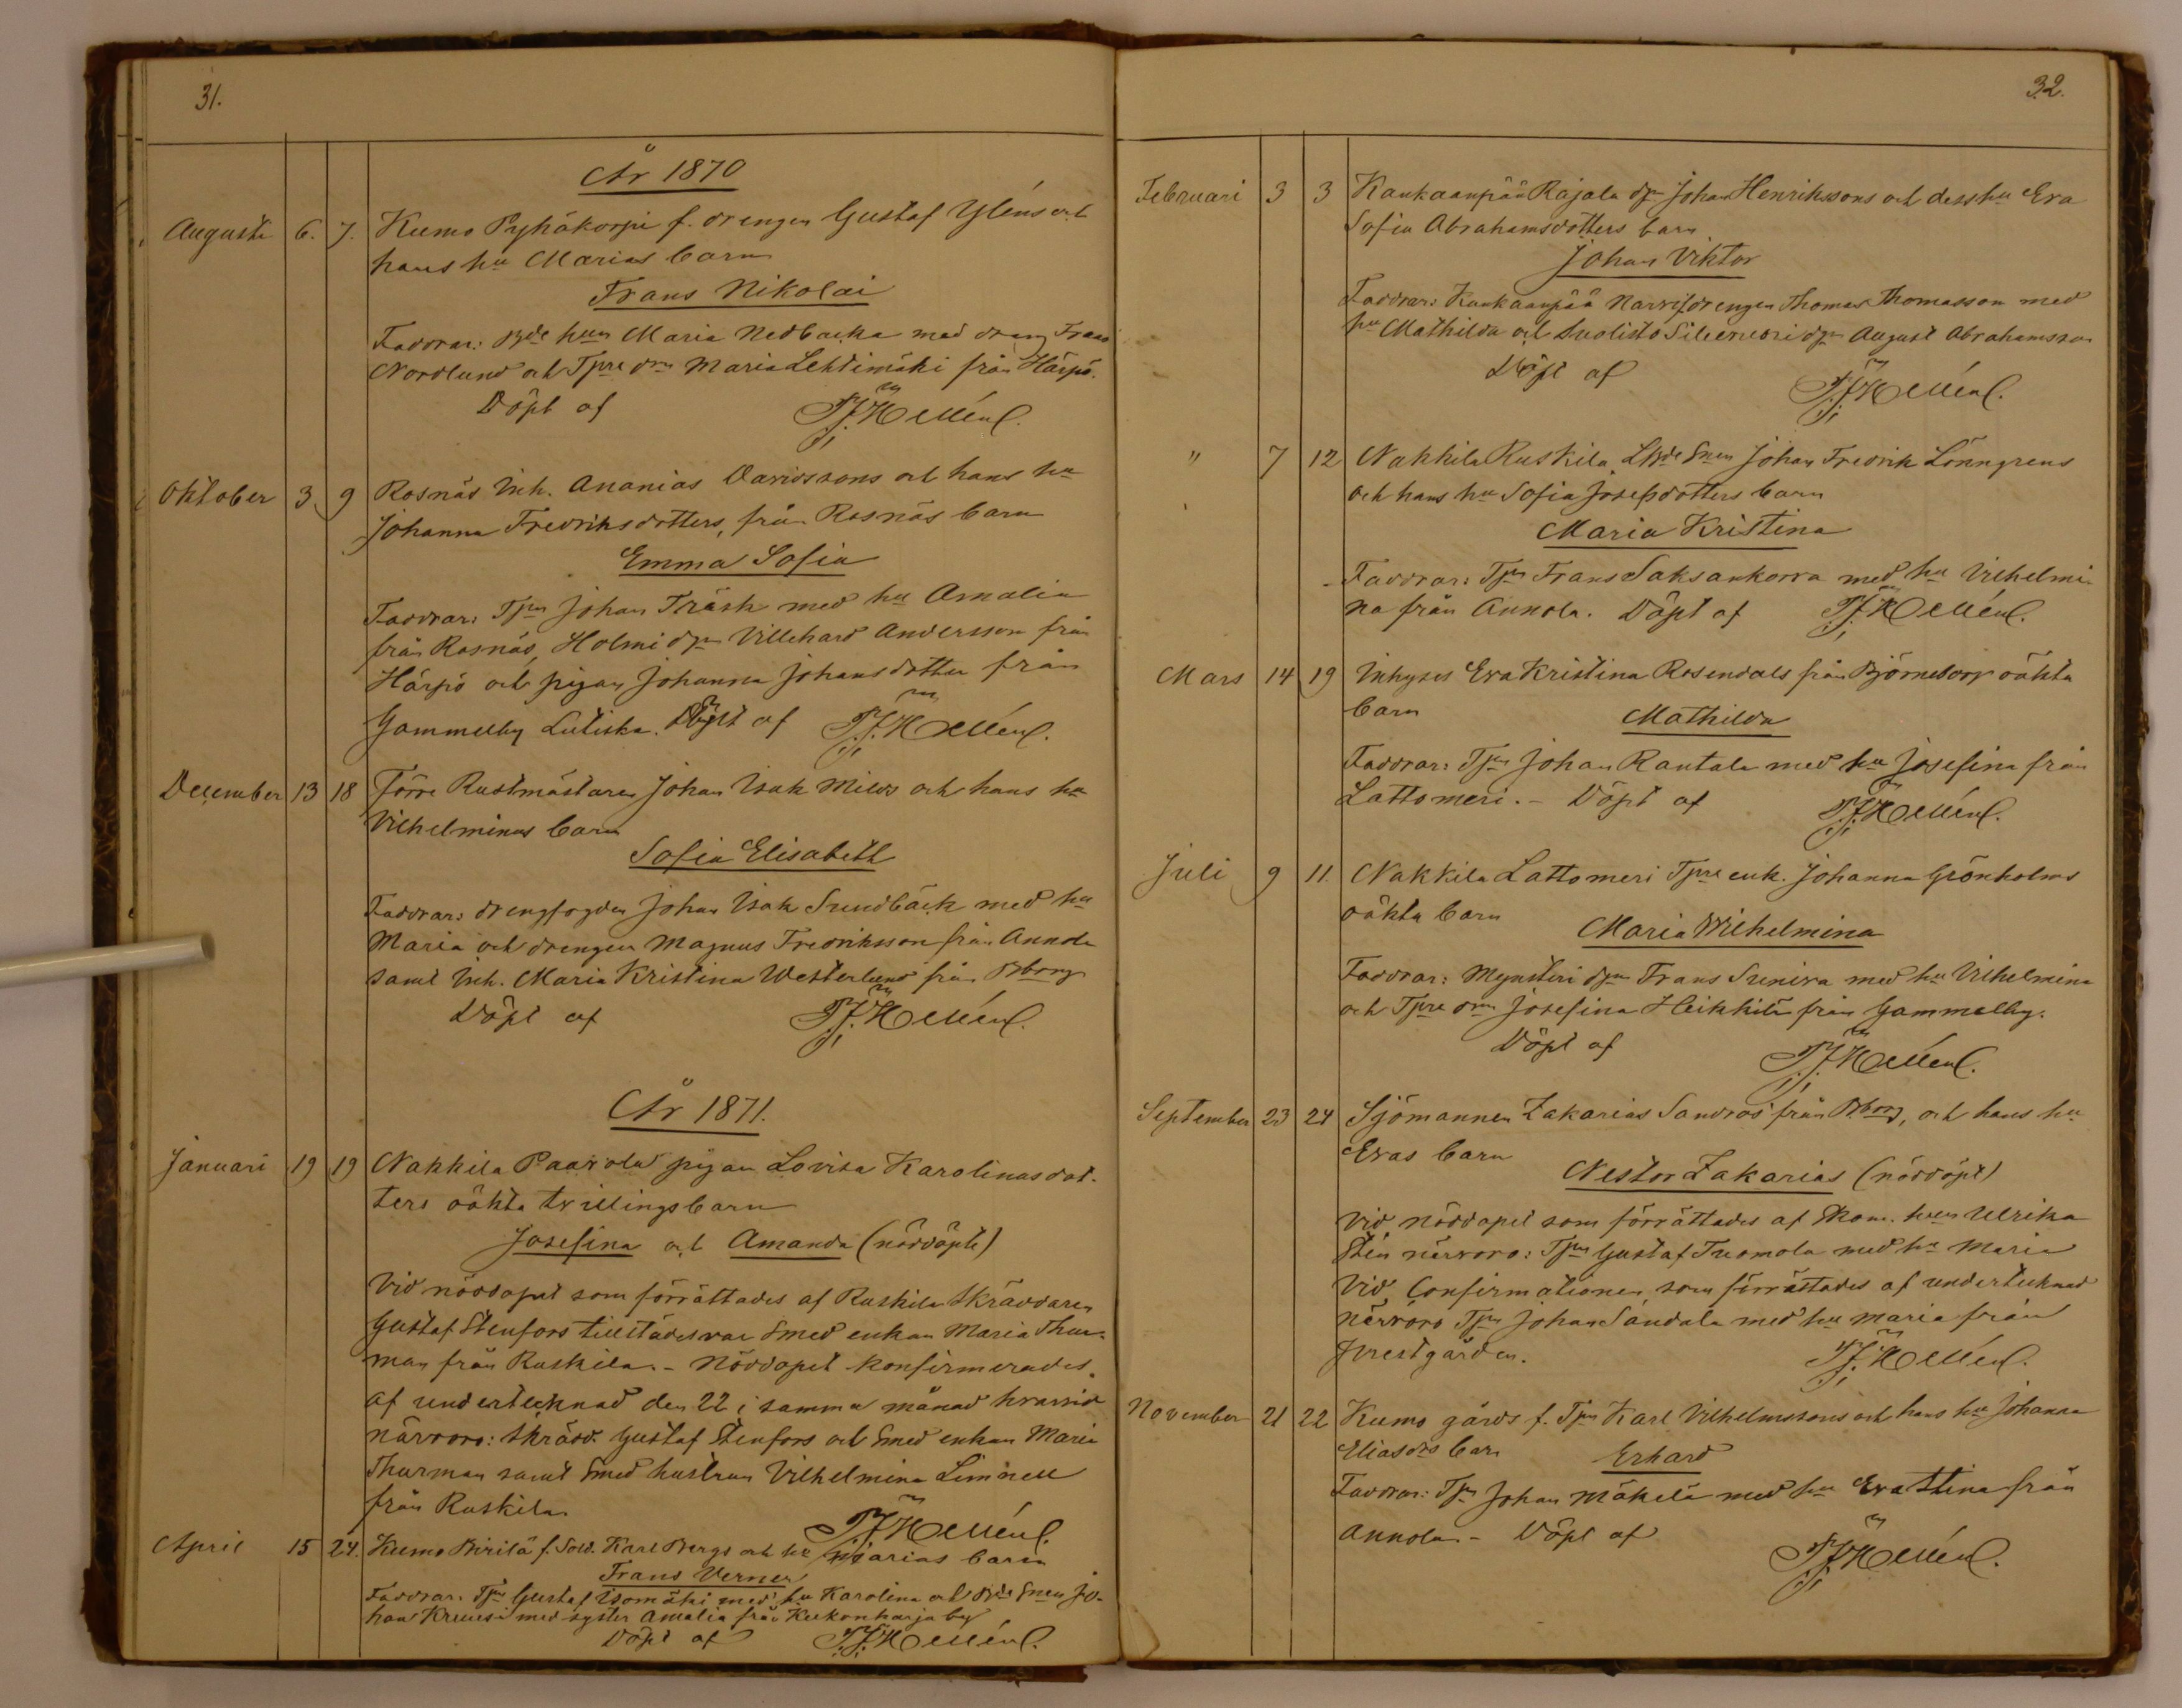 31.
År 1870
Augusti 6. 7. Kumo Pyhäkorpi f. drengen Gustaf Yléns och
hans hu Marias barn
Frans Nikolai
Faddrar: Bde hun Maria Nedbacka med dräng Frans
Nordlund och Tpre drn Maria Lehtimäki från Härpö.
Döpt af
Oktober 3 9 Rosnäs Inh. Ananias Davidssons och hans hu
Johanna Fredriksdotters, från Rosnäs barn
Emma Sofia
Faddrar: Tpn Johan Träsk med hu Amalia
från Rosnäs, Holmi dgn Villehard Andersson från
Härpö och pigan Johanna Johansdotter från
Gammelby Lutiska. Döpt af
December 13 18 Förre Rustmästaren Johan Isak Milds och hans hu
Vilhelminas barn
Sofia Elisabeth
Faddrar: drengfogden Johan Isak Sundbäck med hu
Maria och drengen Magnus Fredriksson från Annola
samt Inh. Maria Kristina Westerlund från Bborg
Döpt af
År 1871.
Januari 19 19 Nakkila Paavola pigan Lovisa Karolinasdot-
ters oäkta tvillingsbarn
Josefina och Amanda (nöddöpte)
Vid nöddopet som förrättades af Ruskila Skräddaren
Gustaf Stenfors tillstädes var Smed enkan Maria Thur-
man från Ruskila. - Nöddopet konfirmerades
af undertecknad den 22 i samma månad hvarvid
närvoro: Skrädd. Gustaf Stenfors och Smed enkan Maria
Thurman samt Smed hustrun Vilhelmina Limnell
från Ruskila
April 15 24. Kumo Pirilä f. Sold. Karl Bergs och hu Marias barn
Frans Verner
Faddrar: Tpn Gustaf Isomäki med hu Karolina och Bde Snen Jo-
han Kruusi med syster Amalia från Kukonharja by
Döpt af
32.
Februari 3 3 Kankaanpää Rajala dgn Johan Henrikssons och dess hu Eva
Sofia Abrahamsdotters barn
Johan Viktor
Faddrar: Kankaanpää Narvi drengen Thomas Thomasson med
hu Mathilda och Suolisto dgn August Abrahamsson
Döpt af
" 7 12 Nakkila Ruskila Lbde Snen Johan Fredrik Lönngrens
och hans hu Sofia Josefsdotters barn
Maria Kristina
Faddrar: Tpn Frans Saksankorva med hu Vilhelmi-
na från Annola. Döpt af
Mars 14 19 Inhyses Eva Kristina Rosendals från Björneborg oäkta
barn
Mathilda
Faddrar: Tpn Johan Rantala med hu Josefina från
Lattomeri. - Döpt af
Juli 9 11. Nakkila Lattomeri Tpre enk. Johanna Grönholms
oäkta barn
Maria Wilhelmina
Faddrar: Mynsteri dgn Frans Suniva med hu Vilhelmina
och Tpre drn Josefina Heikkilä från Gammelby.
Döpt af
September 23 24 Sjömannen Zakarias Sandros från Bborg, och hans hu
Evas barn
Nestor Zakarias (nöddöpt)
Vid nöddopet som förrättades af Skom. hun Ulrika
Stén närvoro: Tpn Gustaf Tuomola med hu Maria
Vid Confirmationen som förrättades af undertecknad
närvoro Tpn Johan Sandala med hu Maria från
Prestgården.
November 21 22 Kumo gårds f. Tpn Karl Vilhelmssons och hans hu Johanna
Eliasdrs barn
Erhard
Faddrar: Tpn Johan Mäkelä med hu Eva Stina från
Annola. - Döpt af